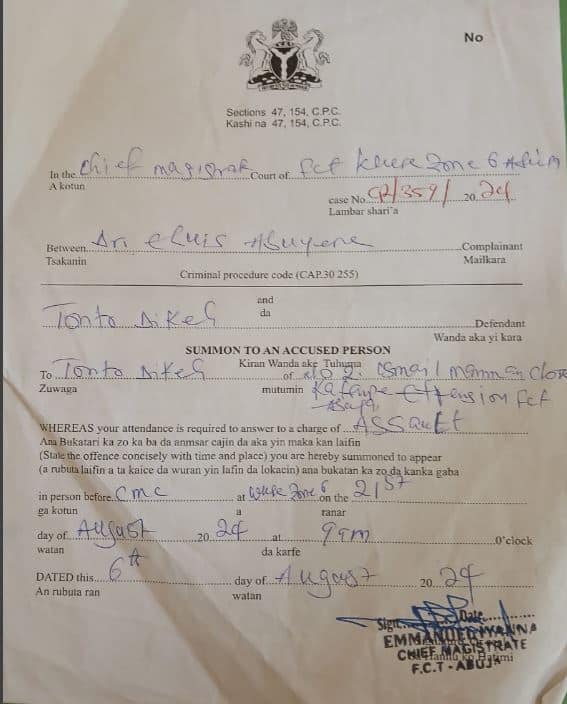 No
Sections 47, 154, C.P.C.
Kashi na 47, 154, C.P.C.
In the Chief magistrate Court of FCT Wuse Zone 6 Abuja
A kotun
case No CR/359/ 2024
Lambar shari'a
Between Ari Eluis Abuyene Complainant
Tsakanin Mailkara
Criminal procedure code (CAP.30 255)
and
da
Tonto Dikeh Defendant
Wanda aka yi kara
SUMMON TO AN ACCUSED PERSON
Kiran Wanda ake Tuhuma
To Tonto Dikeh of No 2. Ismail Mamman Close
Zuwaga mutumin Katampe Extension FCT
Abuja
WHEREAS your attendance is required to answer to a charge of ASSAULT
Ana Bukatari ka zo ka ba da anmsar cajin da aka yin maka kan laifin
(State the offence concisely with time and place) you are hereby summoned to appear
(a rubuta laifin a ta kaice da wuran yin lafin da lokacin) ana bukatan ka zo da kanka gaba
in person before CMC at Wuse Zone 6 on the 21st
ga kotun a ranar
day of August 2024 at 9am O'clock
watan da karfe
DATED this 6th day of August 2024
An rubuta ran watan
Sign Date
EMMANUEL IYANNA
CHIEF MAGISTRATE
F.C.T - ABUJA